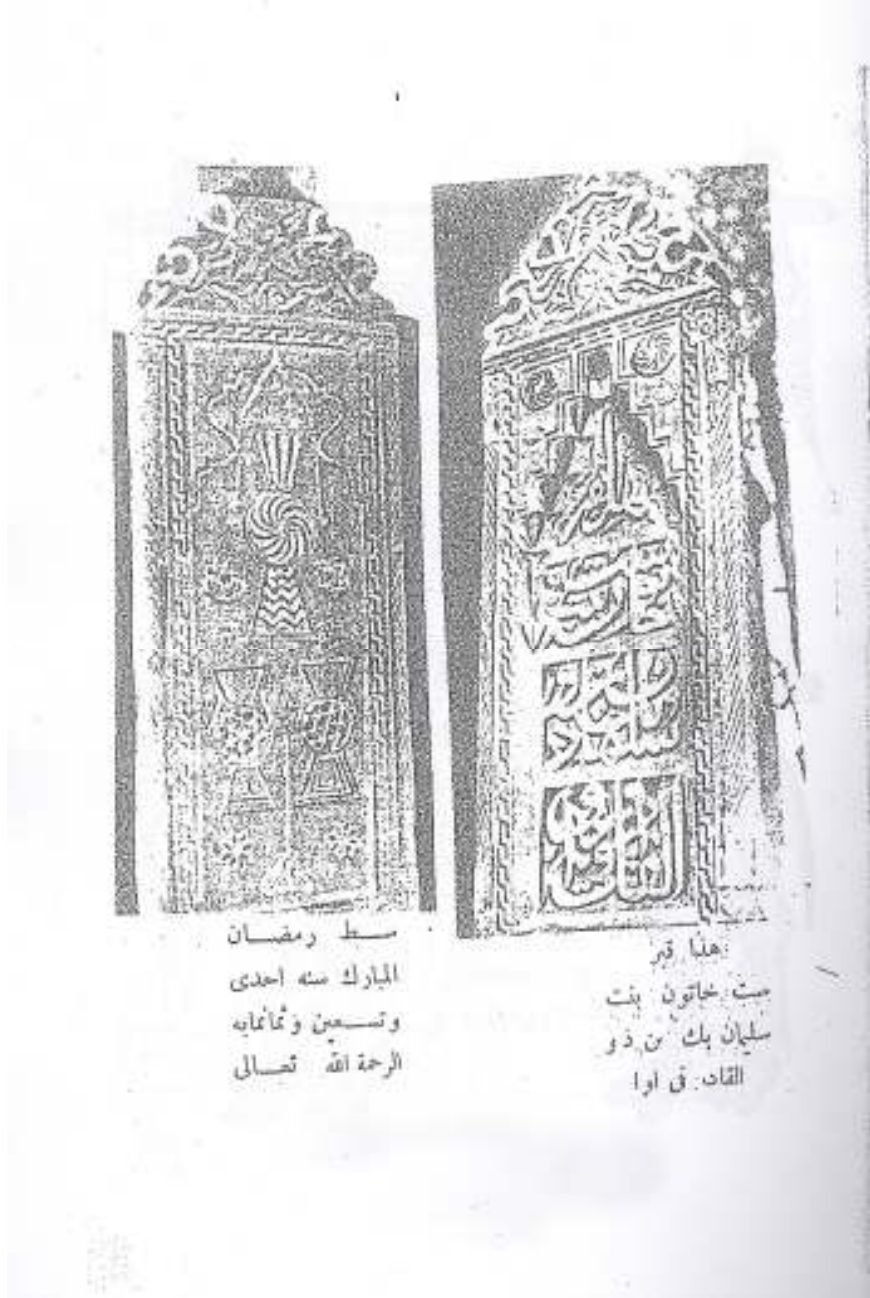 هذا قبر
ست خاتون بنت
سليمان بك بن ذو
القاد. فى اوا
سط رمضان
المبارك سنه احدى
وتسعين وثمانمايه
الرحمة الله تعالى